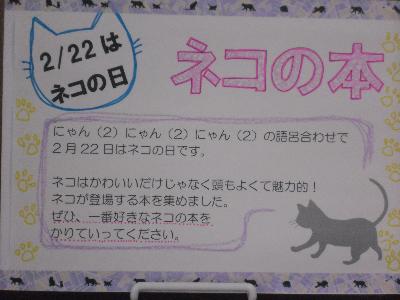 2/22は
ネコの日
ネコの本
にゃん（2）にゃん（2）にゃん（2）の語呂合わせで
2月22日はネコの日です。
ネコはかわいいだけじゃなく頭もよくて魅力的！
ネコが登場する本を集めました。
ぜひ、一番好きなネコの本を
かりていってください。